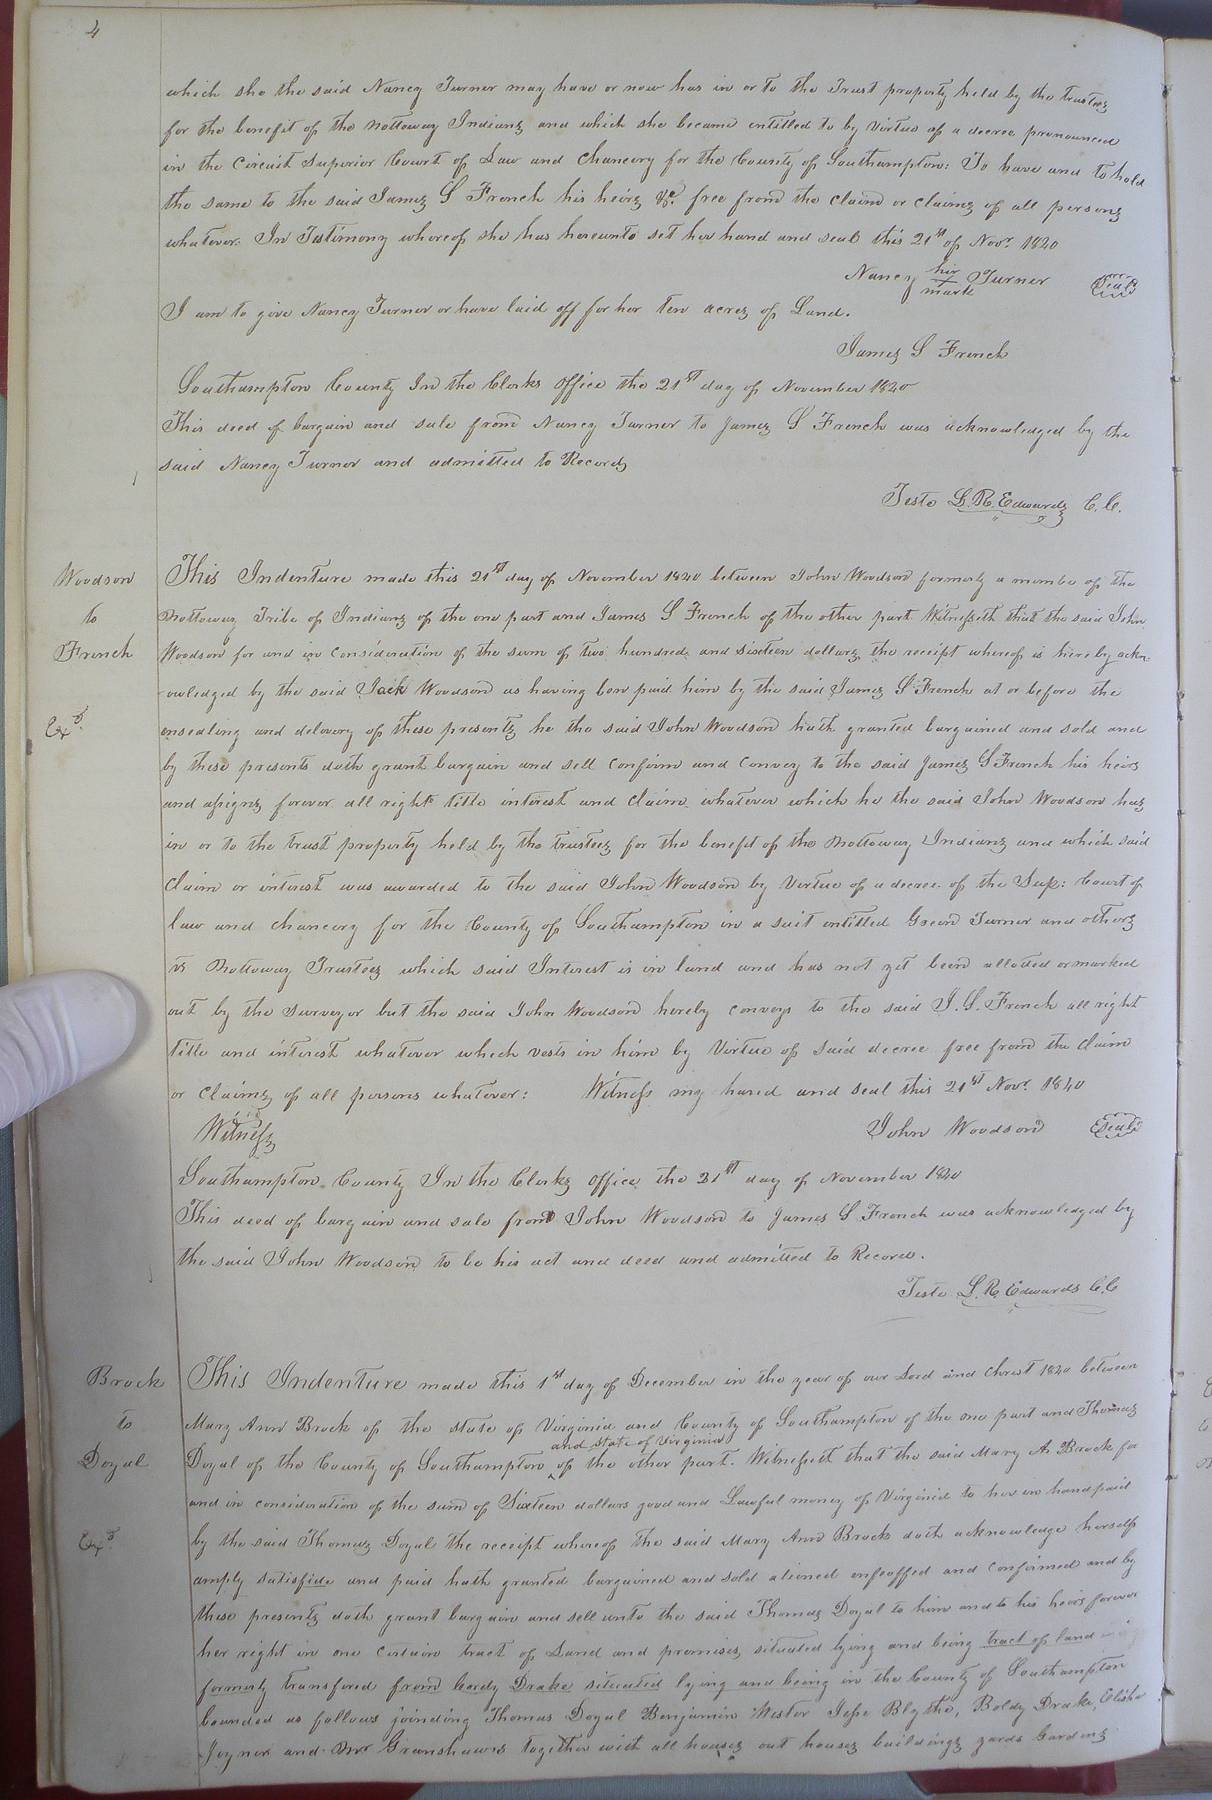 4
which she the said Nancy Turner may have or now has in or to the Trust property held by the trustees
for the benefit of the Nottoway Indians and which she became entitled to by virtue of a decree pronounced
in the Circuit Superior Court of Law and Chancery for the County of Southampton: To have and to hold
the same to the said James S French his heirs &c. free from the claim or claims of all persons
whatever. In Testimony whereof she has hereunto set her hand and seal this 21st of Novr. 1840
Nancy her mark Turner Seal
I am to give Nancy Turner or have laid off for her ten acres of Land.
James S French
Southampton County In the Clerks Office the 21st day of November 1840
This deed of bargain and sale from Nancy Turner to James S French was acknowledged by the
said Nancy Turner and admitted to Record
Teste L. R. Edwards C. C.
Woodson
to
French
Exd.
This Indenture made this 21st day of November 1840 between John Woodson formerly a membe of the
Nottoway Tribe of Indians of the one part and James S French of the other part Witnesseth that the said John
Woodson for and in consideration of the sum of two hundred and sixteen dollars the receipt whereof is hereby ackn-
owledged by the said Jack Woodson as having been paid him by the said James S French at or before the
ensealing and delovery of these presents he the said John Woodson hath granted bargained and sold and
by these presents doth grant bargain and sell confirm and convey to the said James S French his heirs
and assigns forever all right title interest and claim whatever which he the said John Woodson has
in or to the trust property held by the trustees for the benefit of the Nottoway Indians and which said
claim or interest was awarded to the said John Woodson by virtue of a decree of the Sup: Court of
law and chancery for the County of Southampton in a suit entitled Green Turner and others
vs Nottoway Trustees which said Interest is in land and has not yet been alloted or marked
out by the surveyor but the said John Woodson hereby conveys to the said J. S. French all right
title and interest whatever which vests in him by virtue of said decree free from the claim
or claims of all persons whatever: Witness my hand and seal this 21st Novr. 1840
Witness John Woodson Seal
Southampton County In the Clerks Office the 21st day of November 1840
This deed of bargain and sale from John Woodson to James S French was acknowledged by
the said John Woodson to be his act and deed and admitted to Record.
Teste L. R. Edwards C. C
Brock
to
Doyal
Exd.
This Indenture made this 1st day of December in the year of our Lord and Christ 1840 between
Mary Ann Brock of the state of Virginia and County of Southampton of the one part and Thomas
and state of Virginia
Doyal of the County of Southampton of the other part. Witnesseth that the said Mary A. Brock for
and in consideration of the sum of Sixteen dollars good and Lawful money of Virginia to her in hand paid
by the said Thomas Doyal the receipt whereof the said Mary Ann Brock doth acknowledge herself
amply satisfide and paid hath granted bargained and sold aliened enfeoffed and confirmed and by
these presents doth grant bargain and sell unto the said Thomas Doyal to him and to his heirs forever
her right in one certain tract of Land and premises situated lying and being tract of land
formerly transfered from Cordy Drake situated lying and being in the County of Southampton
bounded as follows joinding Thomas Doyal Benjamin Wester Jesse Blythe, Boldy Drake, Elisha
Joyner and Mr Granshaws together with all houses out houses buildings yards Gardens